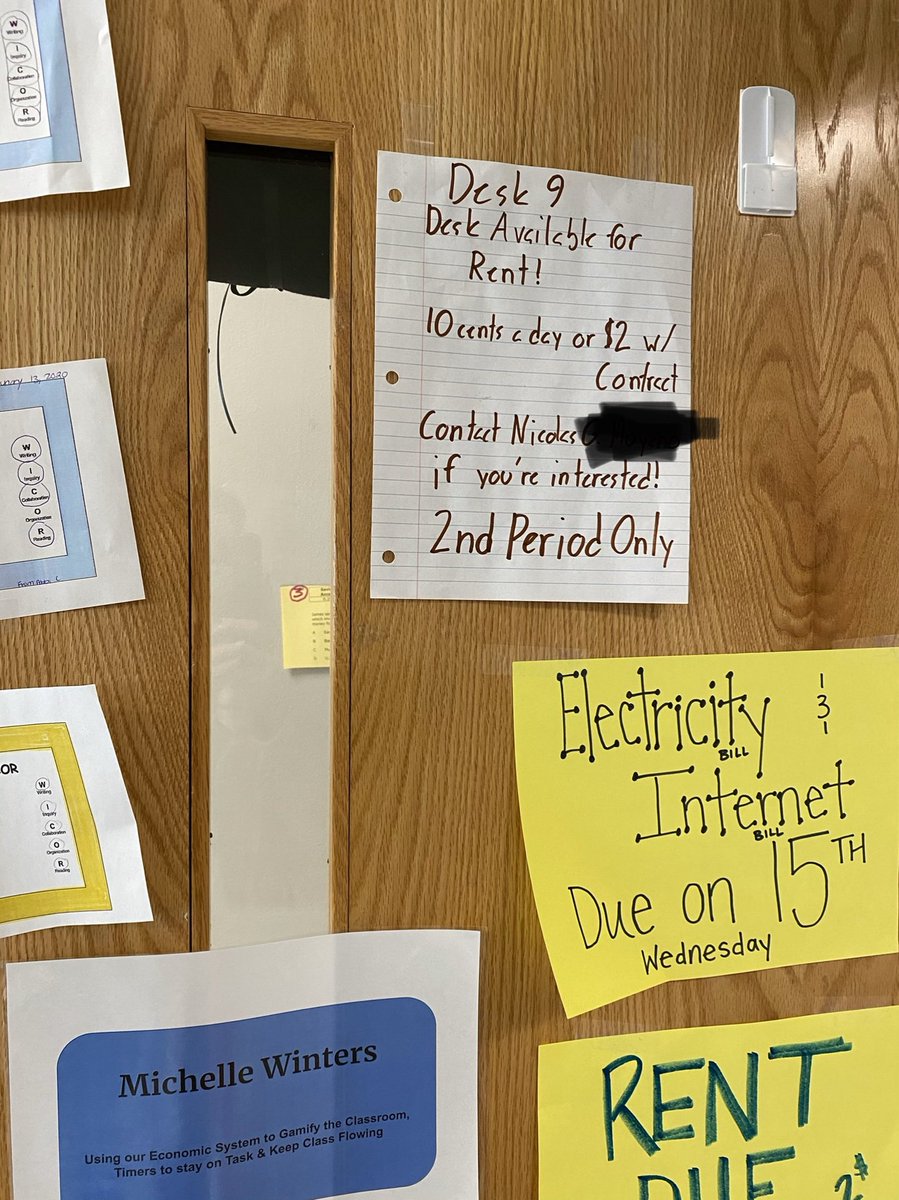 W
Writing
I
Inquiry
C
Collaboration
O
Organization
R
Reading
Desk 9
Desk Available for
Rent!
10 cents a day or $2 w/
Contract
Contact Nicolas
if you're interested!
2nd Period Only
January 13, 2020
W
Writing
I
Inquiry
C
Collaboration
O
Organization
R
Reading
3
OR
W
Writing
I
Inquiry
C
Collaboration
O
Organization
R
Reading
Electricity &
BILL
Internet
BILL
Due on 15TH
Wednesday
Michelle Winters
Using our Economic System to Gamify the Classroom,
Timers to stay on Task & Keep Class Flowing
RENT
DUE